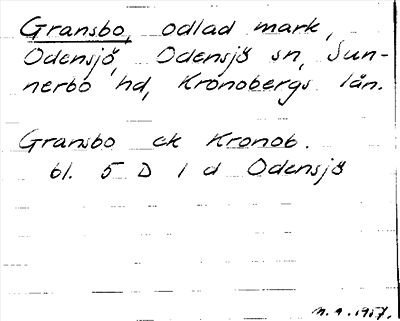 Gransbo, odlad mark,
Odensjö, Odensjö sn, Sun-
nerbo hd, Kronobergs län.
Gransbo ek Kronob.
bl. 5 D 1 d Odensjö